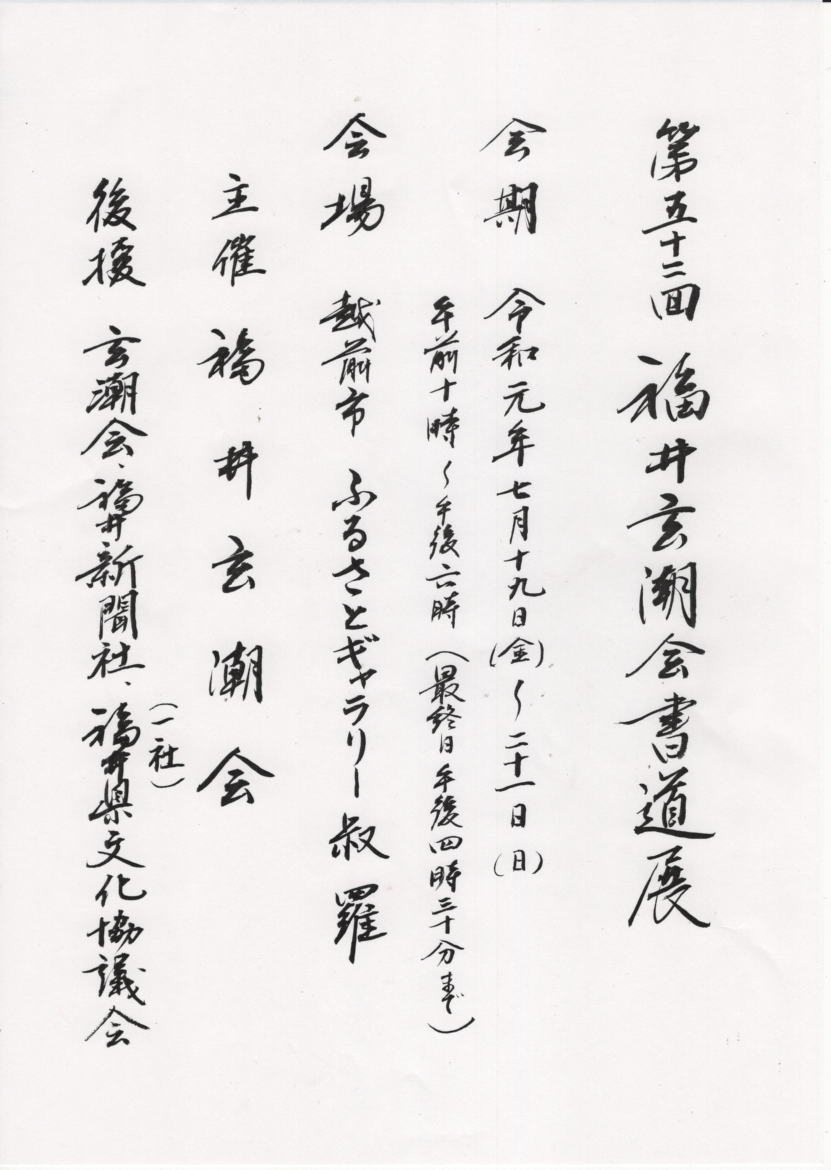 第五十二回 福井玄潮会書道展
会期 令和元年七月十九日(金)〜二十一日(日)
午前十時〜午後六時(最終日午後四時三十分まで)
会場 越前市 ふるさとギャラリー叔羅
主催 福井玄潮会
後援 玄潮会、福井新聞社、(一社)福井県文化協議会